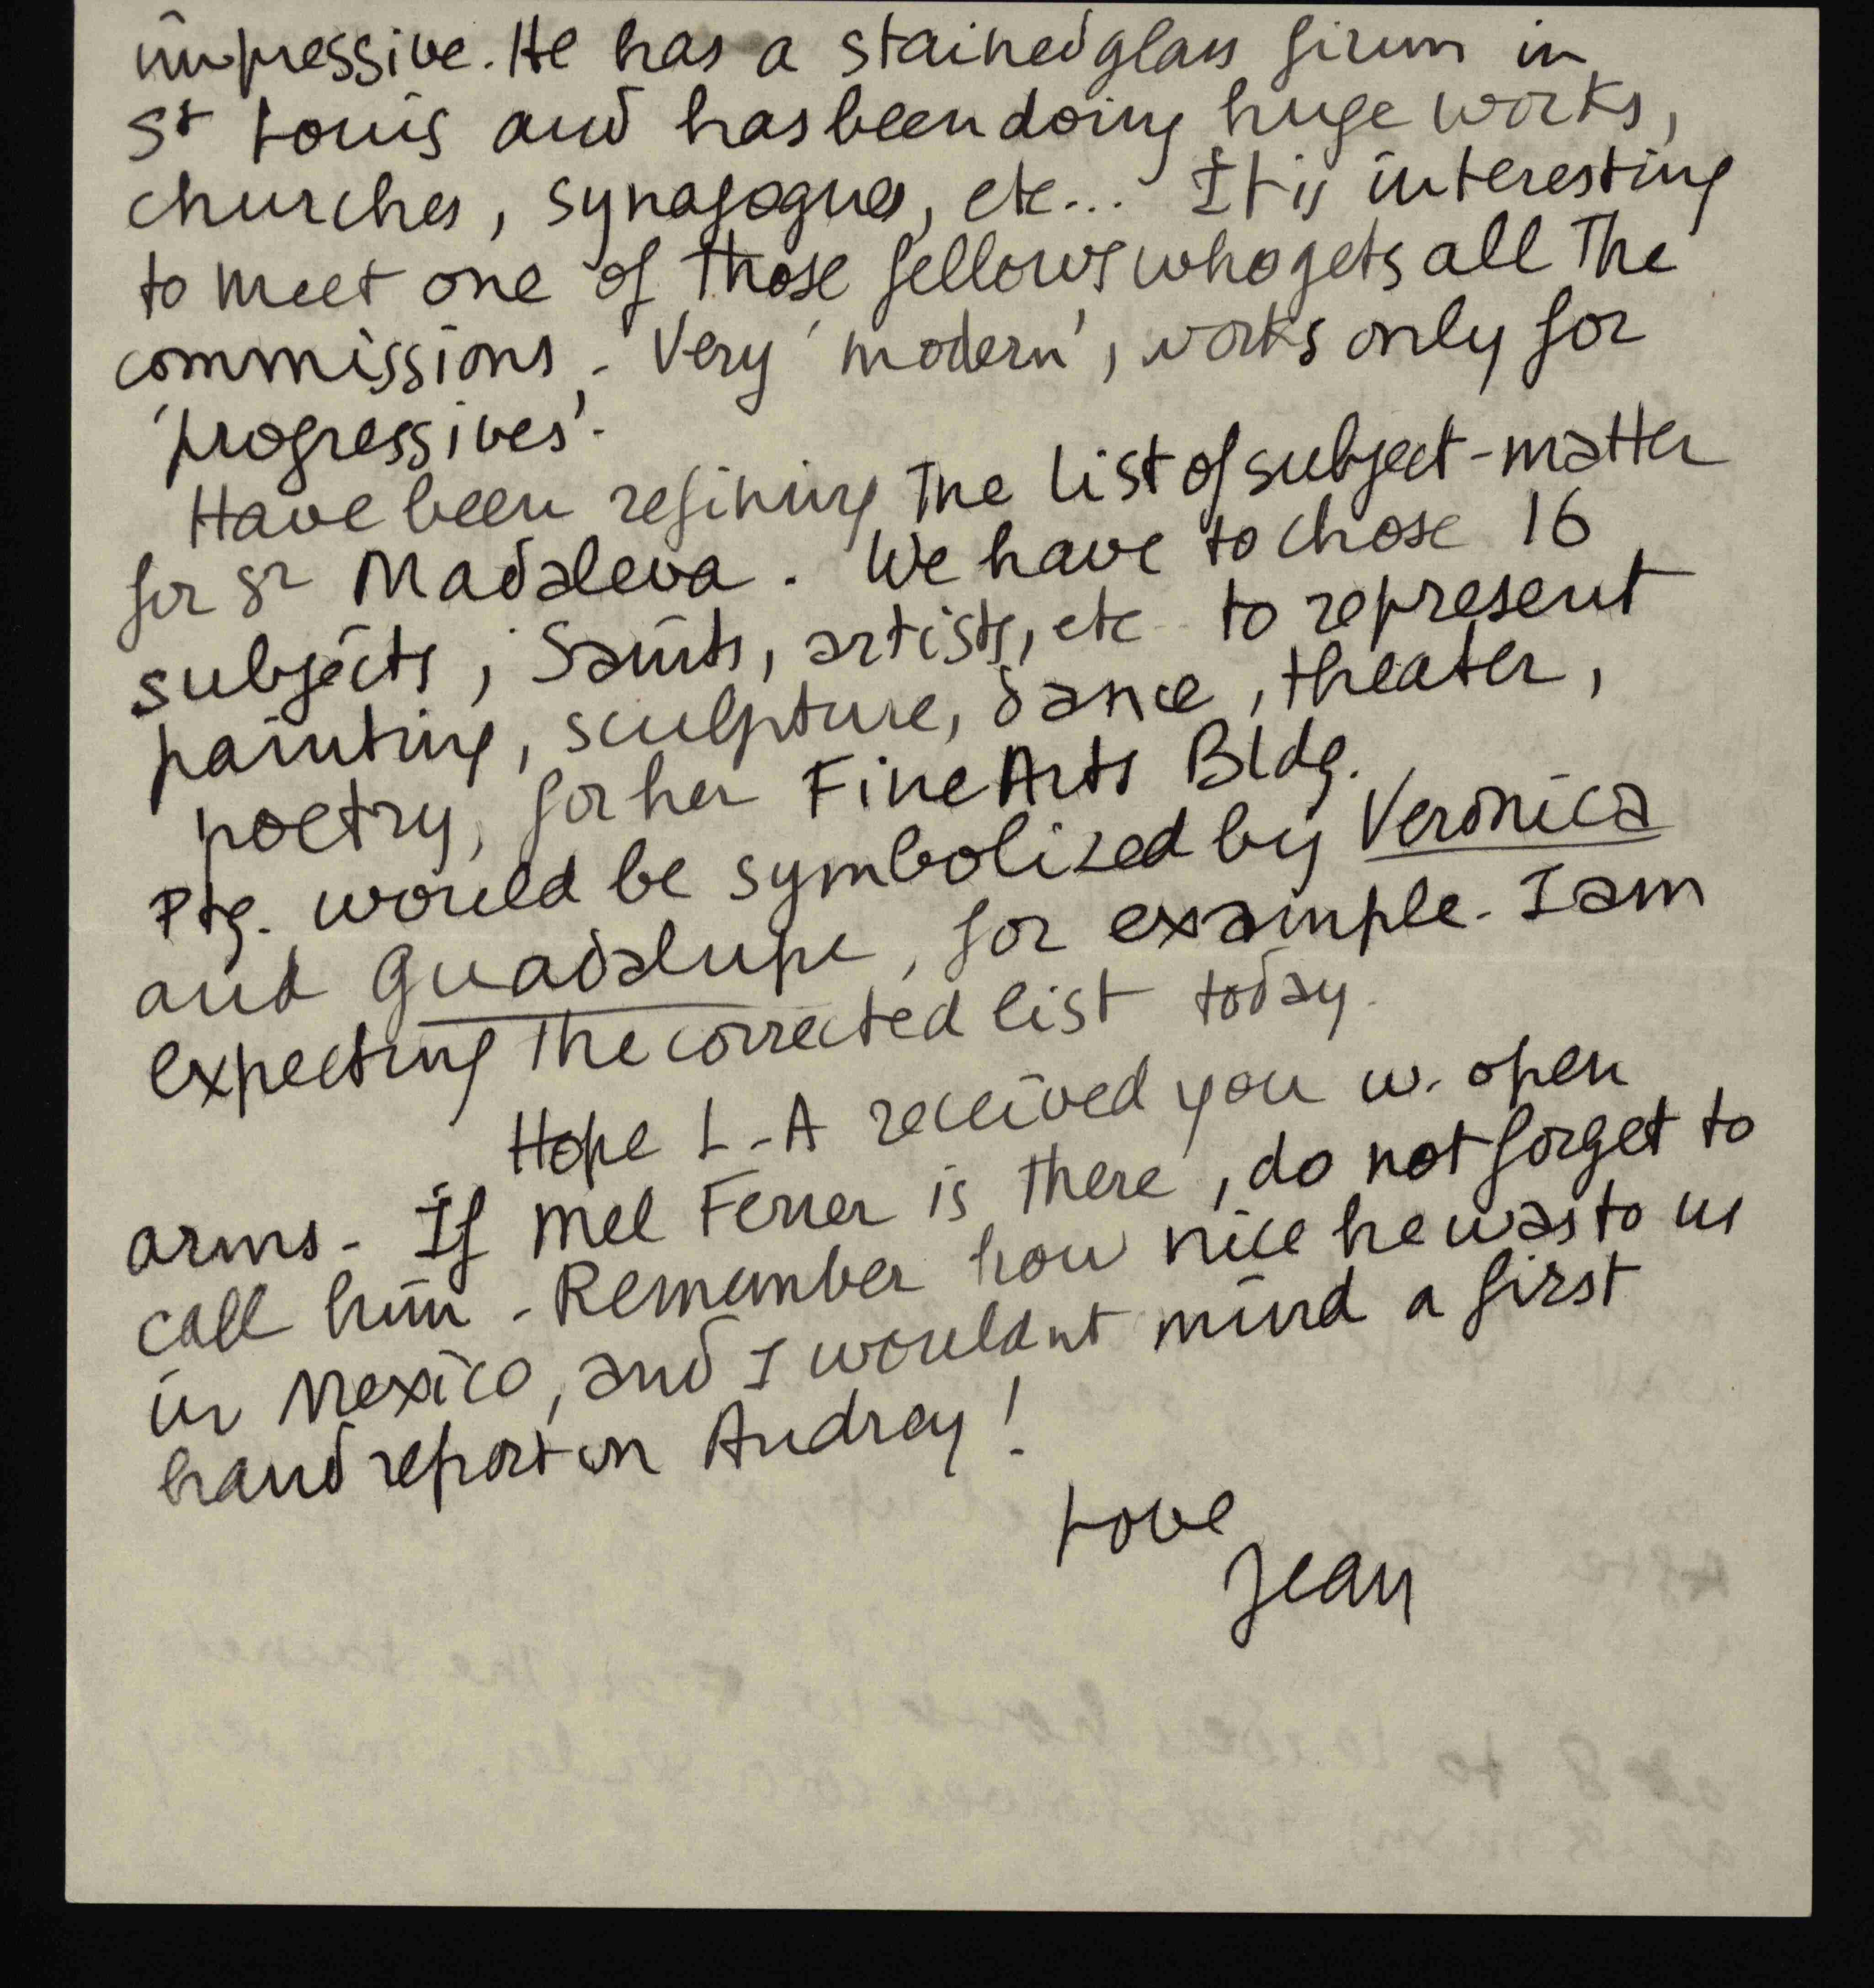 impressive. He has a stained glass firm in
St Louis and has been doing huge works,
churches, synagogues, etc... It is interesting
to meet one of those fellows who gets all the
commissions. Very 'modern', works only for
'progressives'.
Have been refining the list of subject-matter
for Sr Madaleva. We have to chose 16
subjects, Saints, artists, etc to represent
painting, sculpture, dance, theater,
poetry, for her Fine Arts Bldg.
Ptg. would be symbolized by Veronica
and Guadalupe, for example. I am
expecting the corrected list today.
Hope L.A received you w. open
arms. If Mel Ferrer is there, do not forget to
call him. Remember how nice he was to us
in Mexico, and I wouldnt mind a first
hand report on Audrey!
Love
Jean